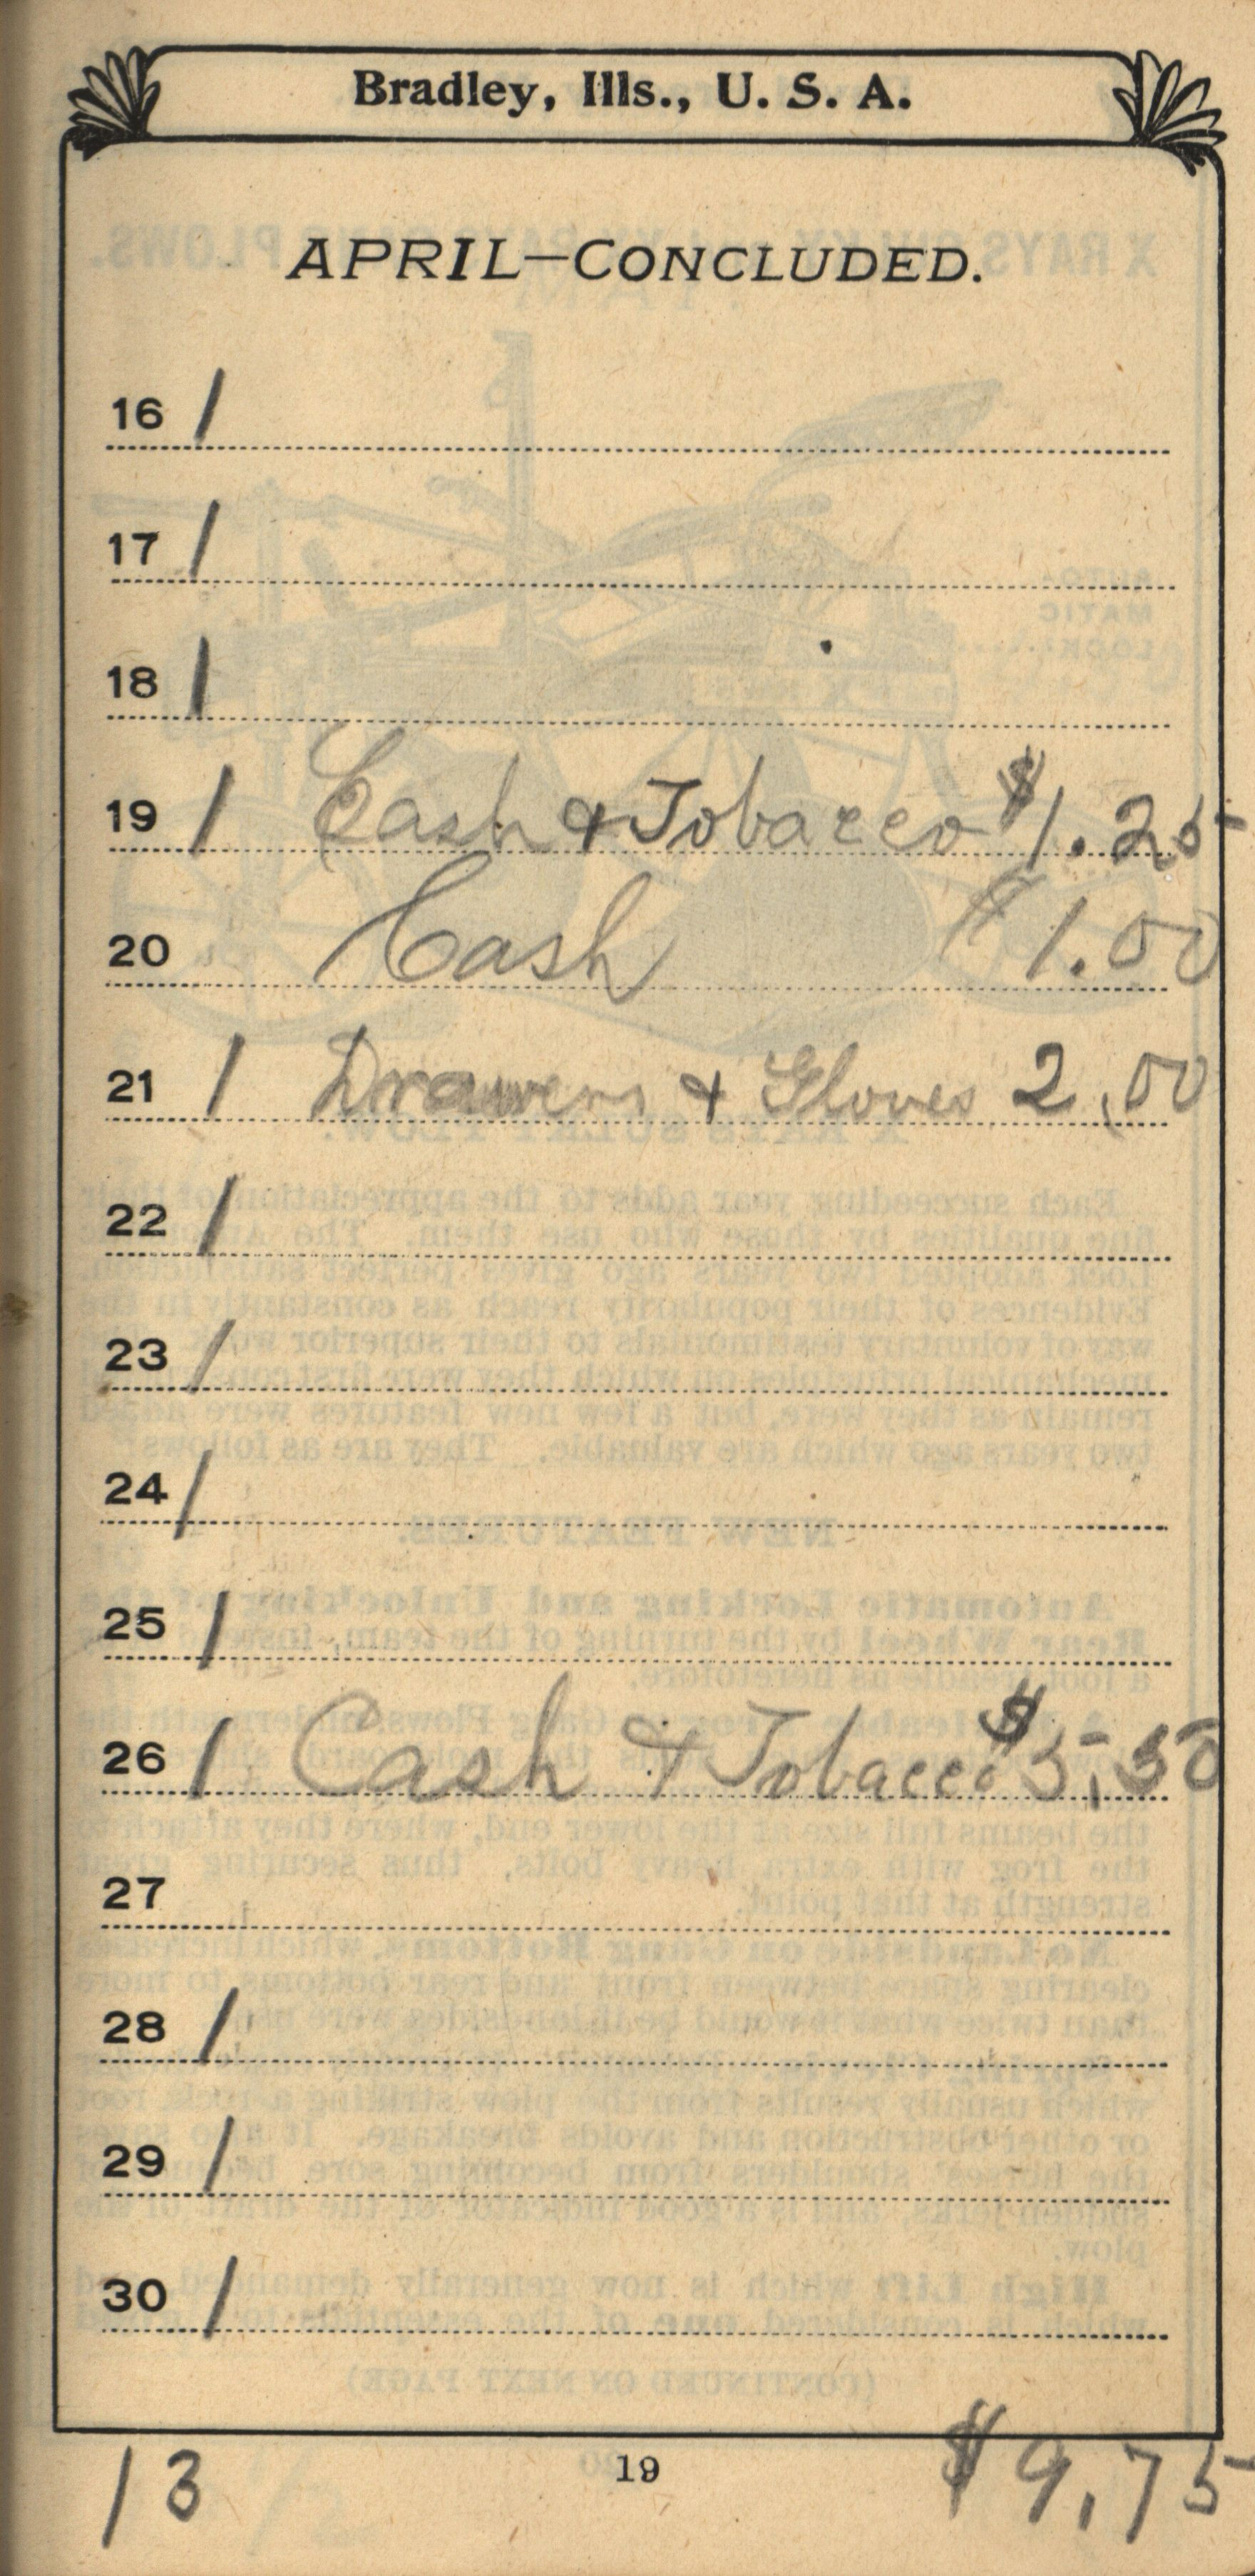 Bradley, Ills., U. S. A.
APRIL—CONCLUDED.
16 /
17 /
18 /
19 / Cash & Tobacco $1.25
20 Cash $1.00
21 / Drawers & Gloves 2.00
22 /
23 /
24 /
25 /
26 / Cash & Tobacco $5.50
27
28 /
29 /
30 /
19
13 $9.75